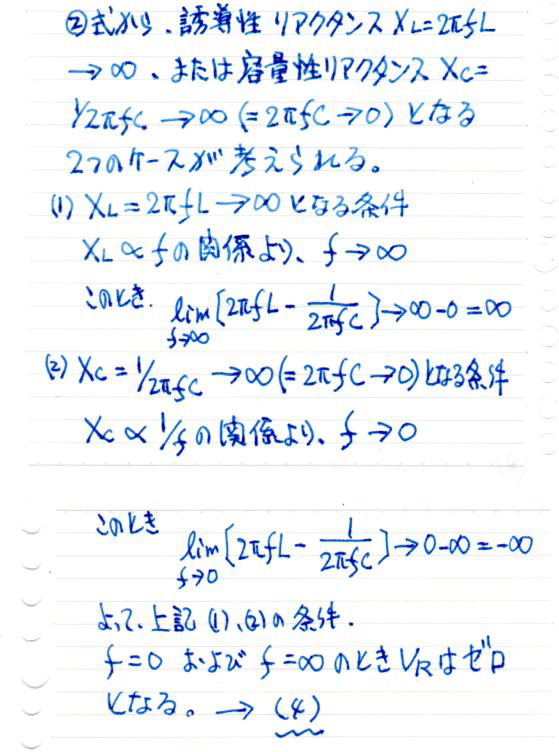 ②式から、誘導性リアクタンス XL=2πfL
→∞、または容量性リアクタンス Xc=
1/2πfC →∞ (=2πfC→0) となる
2つのケースが考えられる。
(1) XL=2πfL→∞となる条件
XL∝fの関係より、f→∞
このとき、lim f→∞ [2πfL - 1/2πfC]→∞-0=∞
(2) Xc=1/2πfC →∞(=2πfC→0)となる条件
Xc∝1/fの関係より、f→0
このとき lim f→0 [2πfL - 1/2πfC]→0-∞=-∞
よって、上記(1)、(2)の条件、
f=0 および f=∞のときVRはゼロ
となる。→ (4)